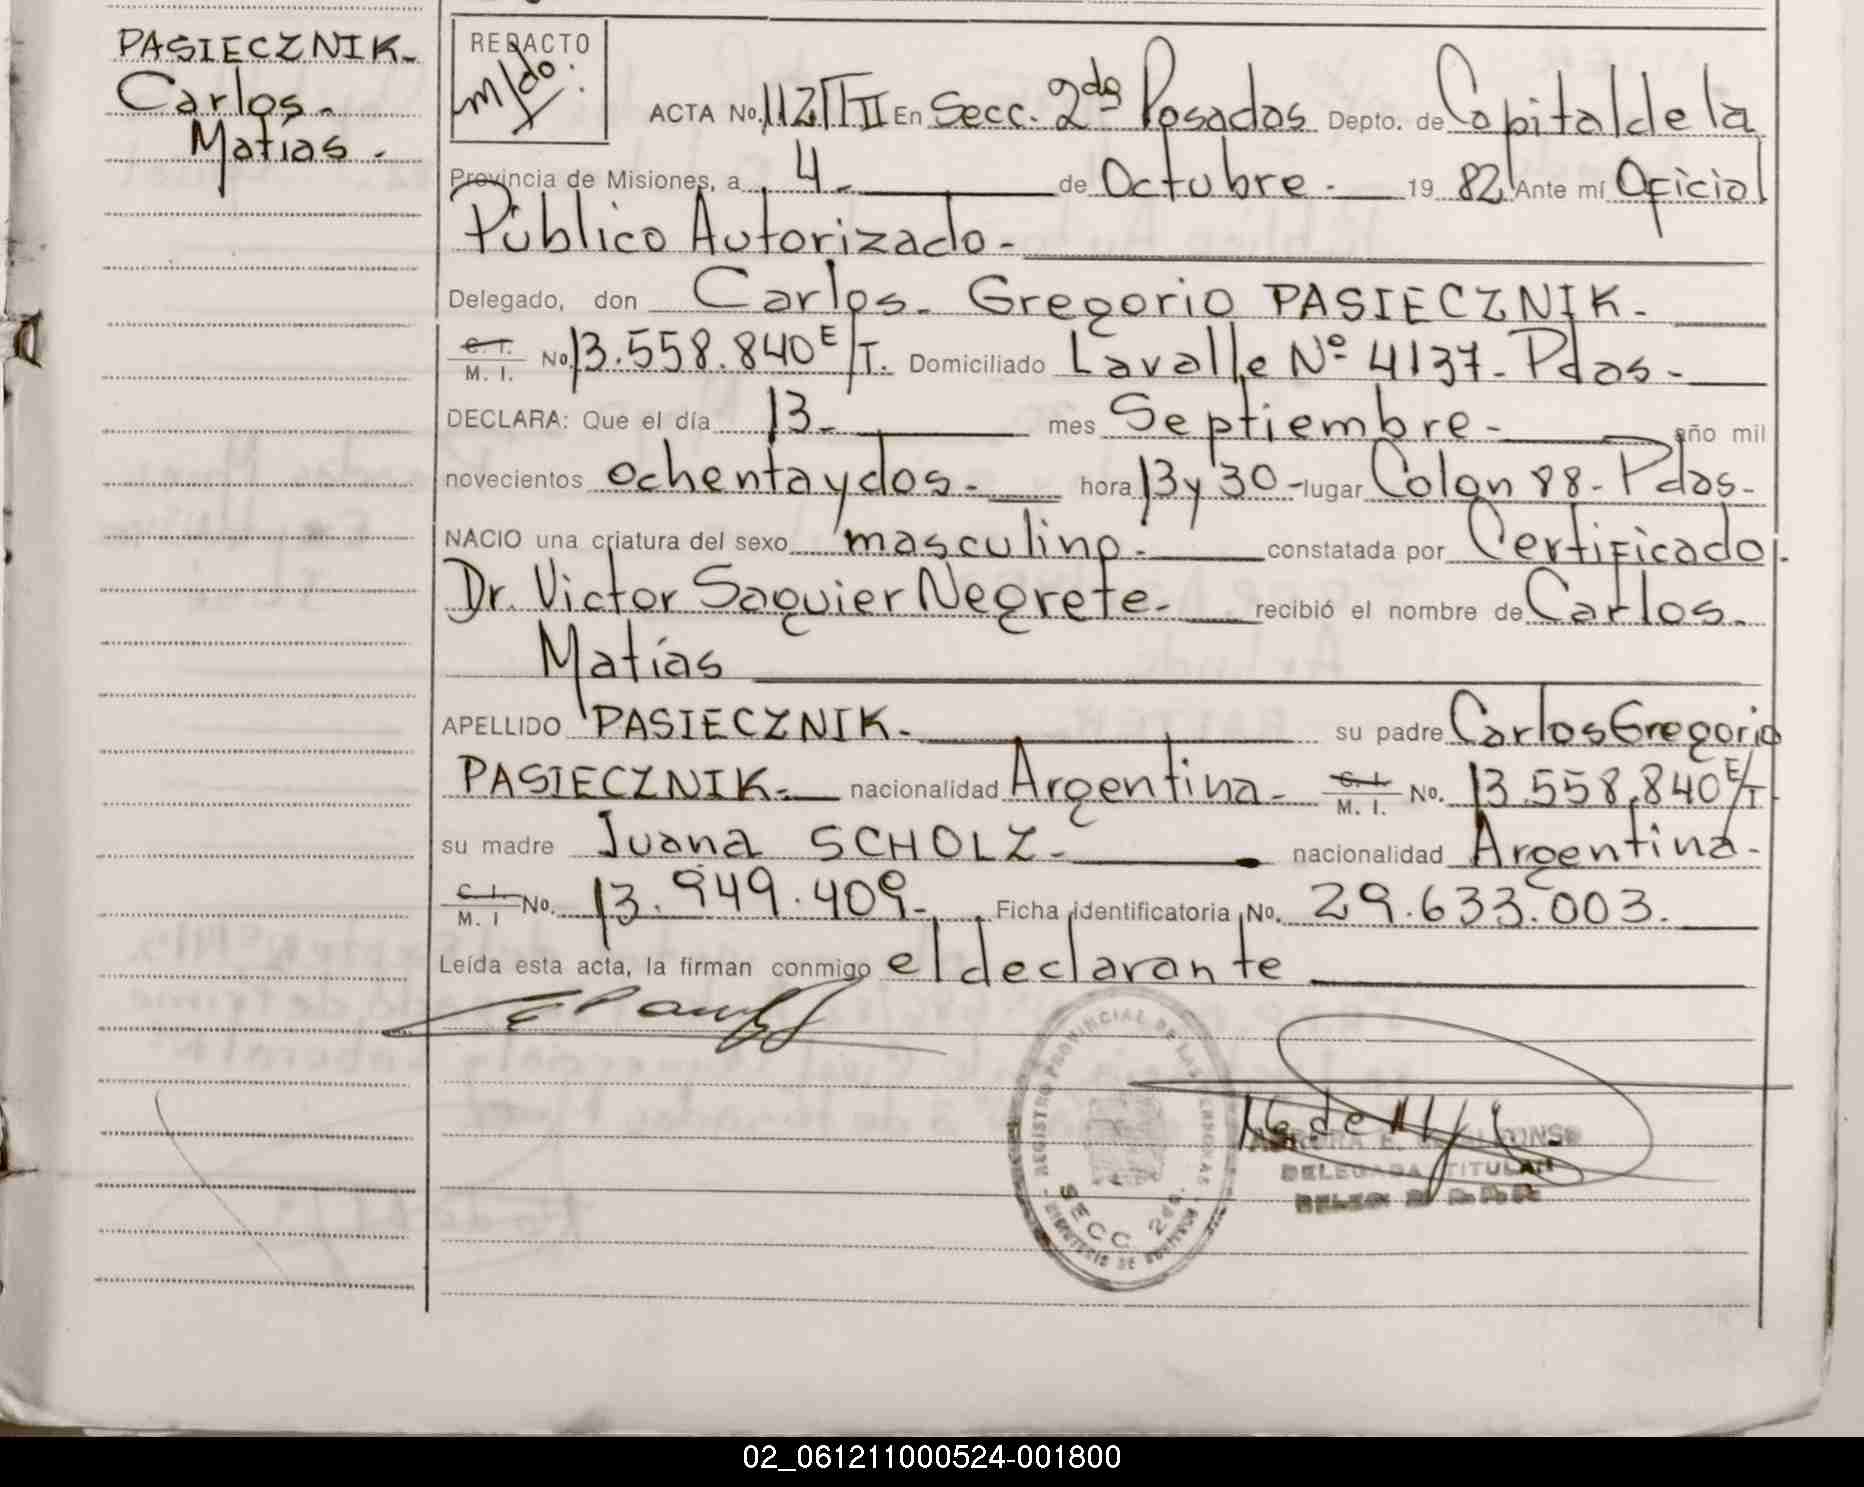 PASIECZNIK-
Carlos-
Matías-
REDACTO
ACTA No. 112/T II En Secc. 2da Posadas Depto. de Capital de la
Provincia de Misiones, a 4- de Octubre- 19 82 Ante mí Oficial
Público Autorizado-
Delegado, don Carlos- Gregorio PASIECZNIK-
C. I. M. I. No. 13.558.840 E/T. Domiciliado Lavalle Nº 4137- Pdas-
DECLARA: Que el día 13- mes Septiembre- año mil
novecientos ochenta y dos- hora 13 y 30- lugar Colon 88- Pdas-
NACIO una criatura del sexo masculino- constatada por Certificado.
Dr. Victor Saguier Negrete- recibió el nombre de Carlos-
Matías
APELLIDO PASIECZNIK- su padre Carlos Gregorio
PASIECZNIK- nacionalidad Argentina- C. I. M. I. No. 13.558.840 E/T
su madre Juana SCHOLZ- nacionalidad Argentina-
C. I. M. I No. 13.949.409- Ficha identificatoria No. 29.633.003.
Leída esta acta, la firman conmigo el declarante
REGISTRO PROVINCIAL DE LAS PERSONAS
SECC 2da.
DELEGADA TITULAR
02_061211000524-001800